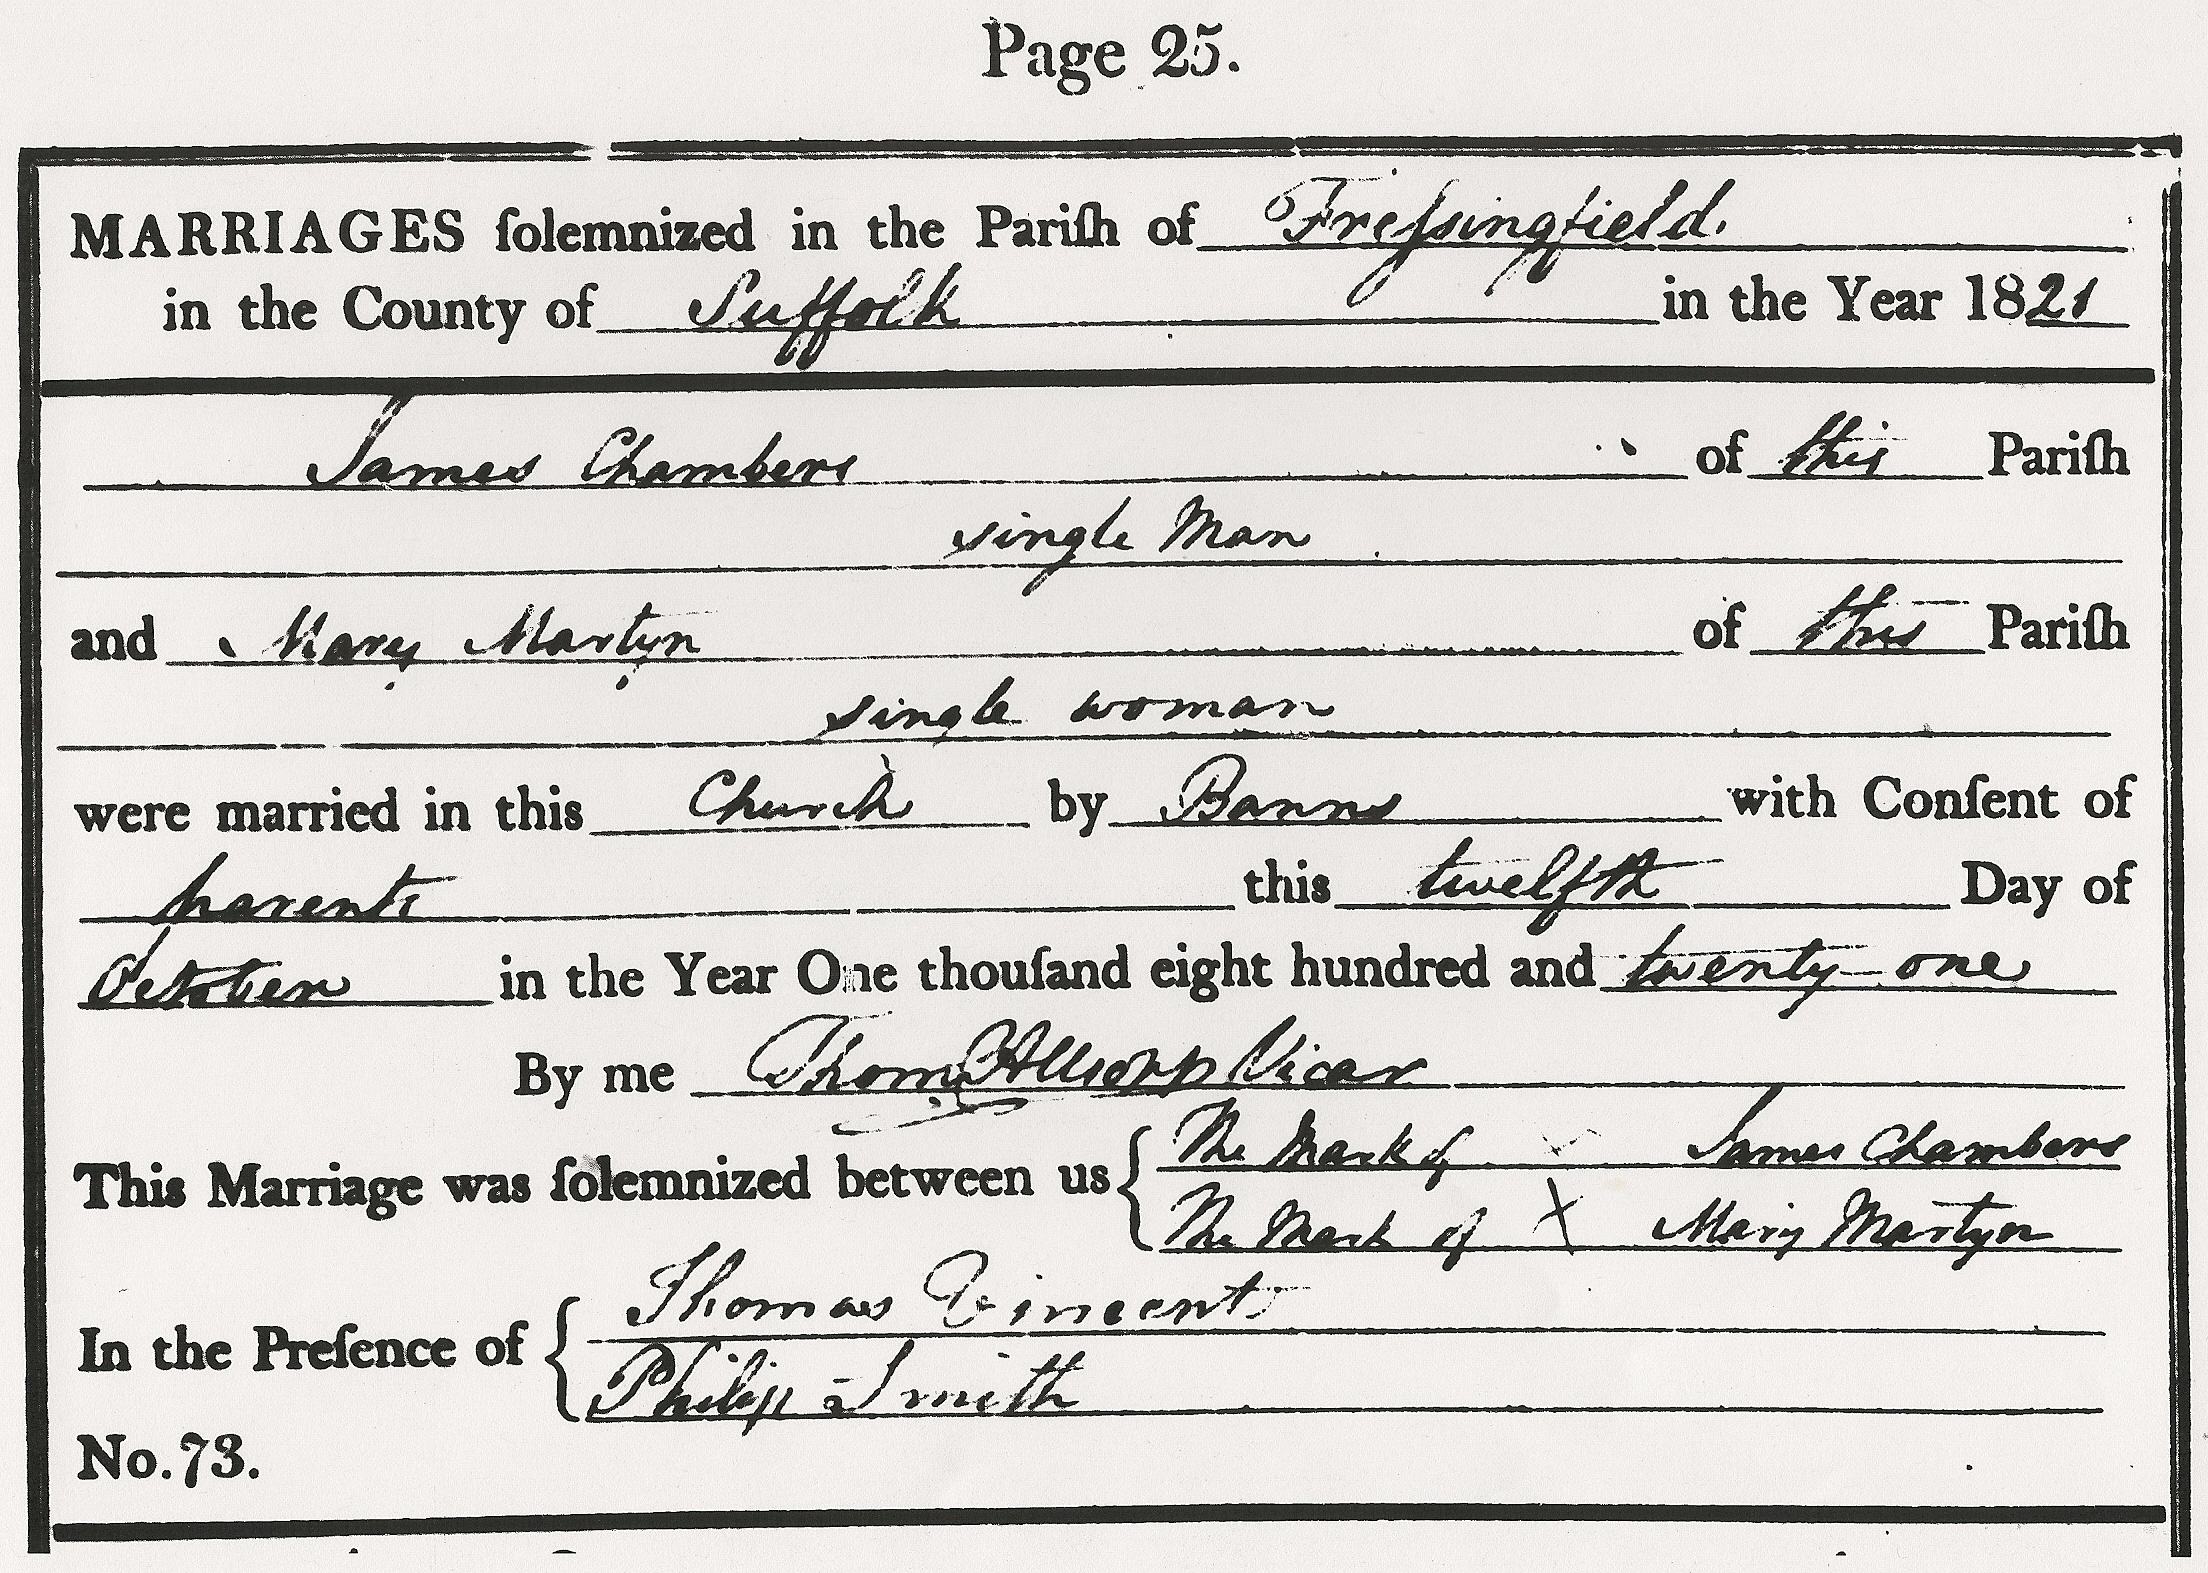 Page 25.
MARRIAGES ſolemnized in the Pariſh of Freſsingfield.
in the County of Suffolk in the Year 1821
James Chambers of this Pariſh
single Man
and Mary Martyn of this Pariſh
single woman
were married in this Church by Banns with Conſent of
parents this twelfth Day of
October in the Year One thouſand eight hundred and twenty-one
By me Thoms Allsopp Vicar
This Marriage was ſolemnized between us { The Mark of James Chambers
The Mark of X Mary Martyn
In the Preſence of { Thomas Vincent
Philip Smith
No. 73.